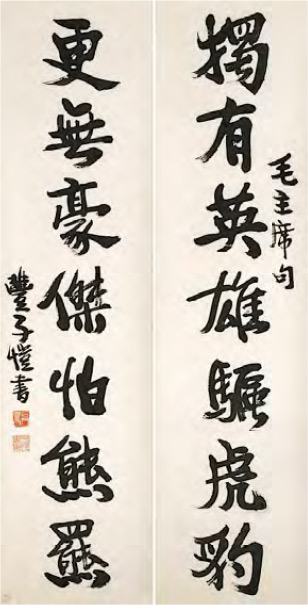 毛主席句
獨有英雄驅虎豹
更無豪傑怕熊羆
豐子愷書